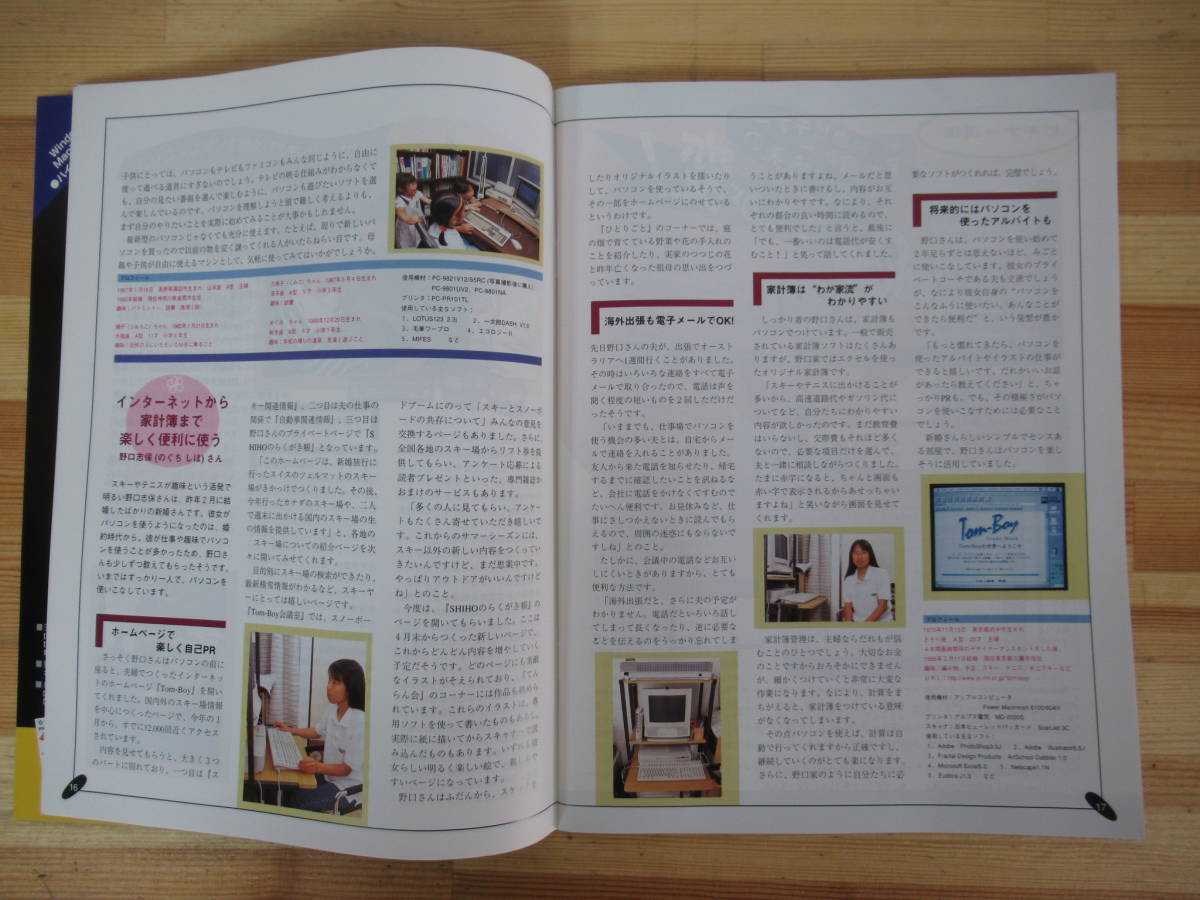 子供にとっては、パソコンもテレビもファミコンもみんな同じように、自由に
使って遊べる道具にすぎないのでしょう。テレビの映る仕組みがわからなくて
も、自分の見たい番組を選んで楽しむように、パソコンも遊びたいソフトを選
んで楽しんでいるのです。パソコンを理解しようと頭で難しく考えるよりも、
まず自分のやりたいことを実際に始めてみることが大事かもしれません。
最新型のパソコンじゃなくても充分に使えます。たとえば、周りで新しいパ
ソコンを買ったので以前の物を安く譲ってくれる人がいたらねらい目です。母
親や子供が自由に使えるマシンとして、気軽に使ってみてはいかがでしょうか。
プロフィール
使用機材：PC-9821V12/S5RC (写真撮影後に購入)、
PC-9801UV2、PC-9801NA
プリンタ：PC-PR101TL
使用している主なソフト：
1、LOTUS123 2.3J 2、一太郎DASH V1.0
3、毛筆ワープロ 4、エコロジーII
5、MIFES など
インターネットから
家計簿まで
楽しく便利に使う
野口志保 (のぐち しほ) さん
スキーやテニスが趣味という活発で
明るい野口志保さんは、昨年2月に結
婚したばかりの新婚さんです。彼女が
パソコンを使うようになったのは、婚
約時代から。彼が仕事や趣味でパソコ
ンを使うことが多かったため、野口さ
んも少しずつ教えてもらったそうです。
いまではすっかり一人で、パソコンを
使いこなしています。
ホームページで
楽しく自己PR
さっそく野口さんはパソコンの前に
座ると、夫婦でつくったインターネッ
トのホームページ『Tom-Boy』を開い
てくれました。国内外のスキー場情報
を中心につくったページで、今年の1
月から、すでに12,000回近くアクセス
されています。
内容を見せてもらうと、大きく3つ
のパートに別れており、一つ目は『ス
キー関連情報』、二つ目は夫の仕事の
関係で『自動車関連情報』、三つ目は
野口さんのプライベートページで『S
HIHOのらくがき帳』となっています。
「このホームページは、新婚旅行に
行ったスイスのツェルマットのスキー
場がきっかけでつくりました。その後、
今年行ったカナダのスキー場や、二人
で週末に出かける国内のスキー場の生
の情報を提供しています」と、各地の
スキー場についての紹介ページを次々
に開いてみせてくれます。
目的別にスキー場の検索ができたり、
最新積雪情報がわかるなど、スキーヤ
ーにとっては嬉しいページです。
『Tom-Boy会議室』では、スノーボー
ドブームにのって「スキーとスノーボ
ードの共存について」みんなの意見を
交換するページもありました。さらに、
全国各地のスキー場からリフト券を提
供してもらい、アンケート応募による
読者プレゼントといった、専門雑誌か
おまけのサービスもあります。
「多くの人に見てもらい、アンケー
トもたくさん寄せていただき嬉しいで
す。これからのサマーシーズンには、
スキー以外の新しい内容をつくってい
きたいんですけど、まだ思案中です。
やっぱりアウトドアがいいんですけど
ね」とのこと。
今度は、『SHIHOのらくがき帳』の
ページを開いてもらいました。ここは
4月末からつくった新しいページで、
これからどんどん内容を増やしていく
予定だそうです。どのページにも素敵
なイラストがそえられており、『てん
らん会』のコーナーには作品も納めら
れています。これらのイラストは、専
用ソフトを使って書いたものもあるし、
実際に紙に描いてからスキャナーで読
み込んだものもあります。いずれも彼
女らしい明るく楽しい絵で、親しみや
すいページになっています。
野口さんはふだんから、スケッチを
16
したりオリジナルイラストを描いたり
して、パソコンを使っているそうで、
その一部をホームページにのせている
というわけです。
『ひとりごと』のコーナーでは、庭
の畑で育てている野菜や花の手入れの
ことを紹介したり、実家のつつじの花
と昨年亡くなった祖母の思い出をつづ
っています。
海外出張も電子メールでOK!
先日野口さんの夫が、出張でオースト
ラリアへ1週間行くことがありました。
その時はいろいろな連絡をすべて電子
メールで取り合ったので、電話は声を
聞く程度の短いものを2回しただけだ
ったそうです。
「いままでも、仕事場でパソコンを
使う機会の多い夫とは、自宅からメー
ルで連絡を入れることがありました。
友人から来た電話を知らせたり、帰宅
するまでに確認したいことを訊ねるな
ど、会社に電話をかけなくてすむので
たいへん便利です。お昼休みなど、仕
事にさしつかえないときに読んでもら
えるので、周囲の迷惑にもならないで
すしね」とのこと。
たしかに、会議中の電話などお互い
しにくいときがありますから、とても
便利な方法です。
「海外出張だと、さらに夫の予定が
わかりません。電話だといろいろ話し
てしまって長くなったり、逆に必要な
ことを伝えるのをうっかり忘れてしま
うことがありますよね。メールだと思
いついたときに書けるし、内容がお互
いにわかりやすいです。なにより、それ
ぞれの都合の良い時間に読めるので、
とても便利でした」と言うと、最後に
「でも、一番いいのは電話代が安くす
むこと！」と笑って話してくれました。
家計簿は“わが家流”が
わかりやすい
しっかり者の野口さんは、家計簿も
パソコンでつけています。一般で販売
されている家計簿ソフトはたくさんあ
りますが、野口家ではエクセルを使っ
たオリジナル家計簿です。
「スキーやテニスに出かけることが
多いから、高速道路代やガソリン代に
ついてなど、自分たちにわかりやすい
内容が欲しかったのです。まだ教育費
はいらないし、交際費もそれほど多く
ないので、必要な項目だけを選んで、
夫と一緒に相談しながらつくりました。
たまに赤字になると、ちゃんと画面も
赤い字で表示されるからあせっちゃい
ますよね」と笑いながら画面を見せて
くれます。
家計簿管理は、主婦ならだれもが悩
むことのひとつでしょう。大切なお金
のことですからおろそかにできません
が、細かくつけていくと非常に大変な
作業になります。なにより、計算をま
ちがえると、家計簿をつけている意味
がなくなってしまいます。
その点パソコンを使えば、計算は自
動で行ってくれますから正確ですし、
継続していくのがとても楽になります。
さらに、野口家のように自分たちに必
要なソフトがつくれれば、完璧でしょう。
将来的にはパソコンを
使ったアルバイトも
野口さんは、パソコンを使い始めて
2年足らずとは思えないほど、みごと
に使いこなしています。彼女のプライ
ベートコーチである夫も立派でしょう
が、なにより彼女自身の“パソコンを
こんなふうに使いたい、あんなことが
できたら便利だ”という発想が豊か
です。
「もっと慣れてきたら、パソコンを
使ったアルバイトやイラストの仕事が
できると嬉しいです。だれかいいお話
があったら教えてください」と、ちゃ
っかりPRも。でも、その積極さがパソ
コンを使いこなすためには必要なこと
でしょう。
新婚さんらしいシンプルでセンスあ
る部屋で、野口さんはパソコンを楽し
そうに活用していました。
Tom-Boy
プロフィール
使用機材：アップルコンピュータ
Power Macintosh 6100/60AV
プリンタ：アルプス電気 MD-2000S
スキャナ：日本ヒューレットパッカード ScanJet 3C
使用している主なソフト：
1、Adobe PhotoShop3.0J 2、Adobe Illustrator5.5J
3、Fractal Design Products ArtSchool Dabbler 1.0
4、Microsoft Excel5.0 5、Netscape1.1N
6、Eudora-J1.3 など
17